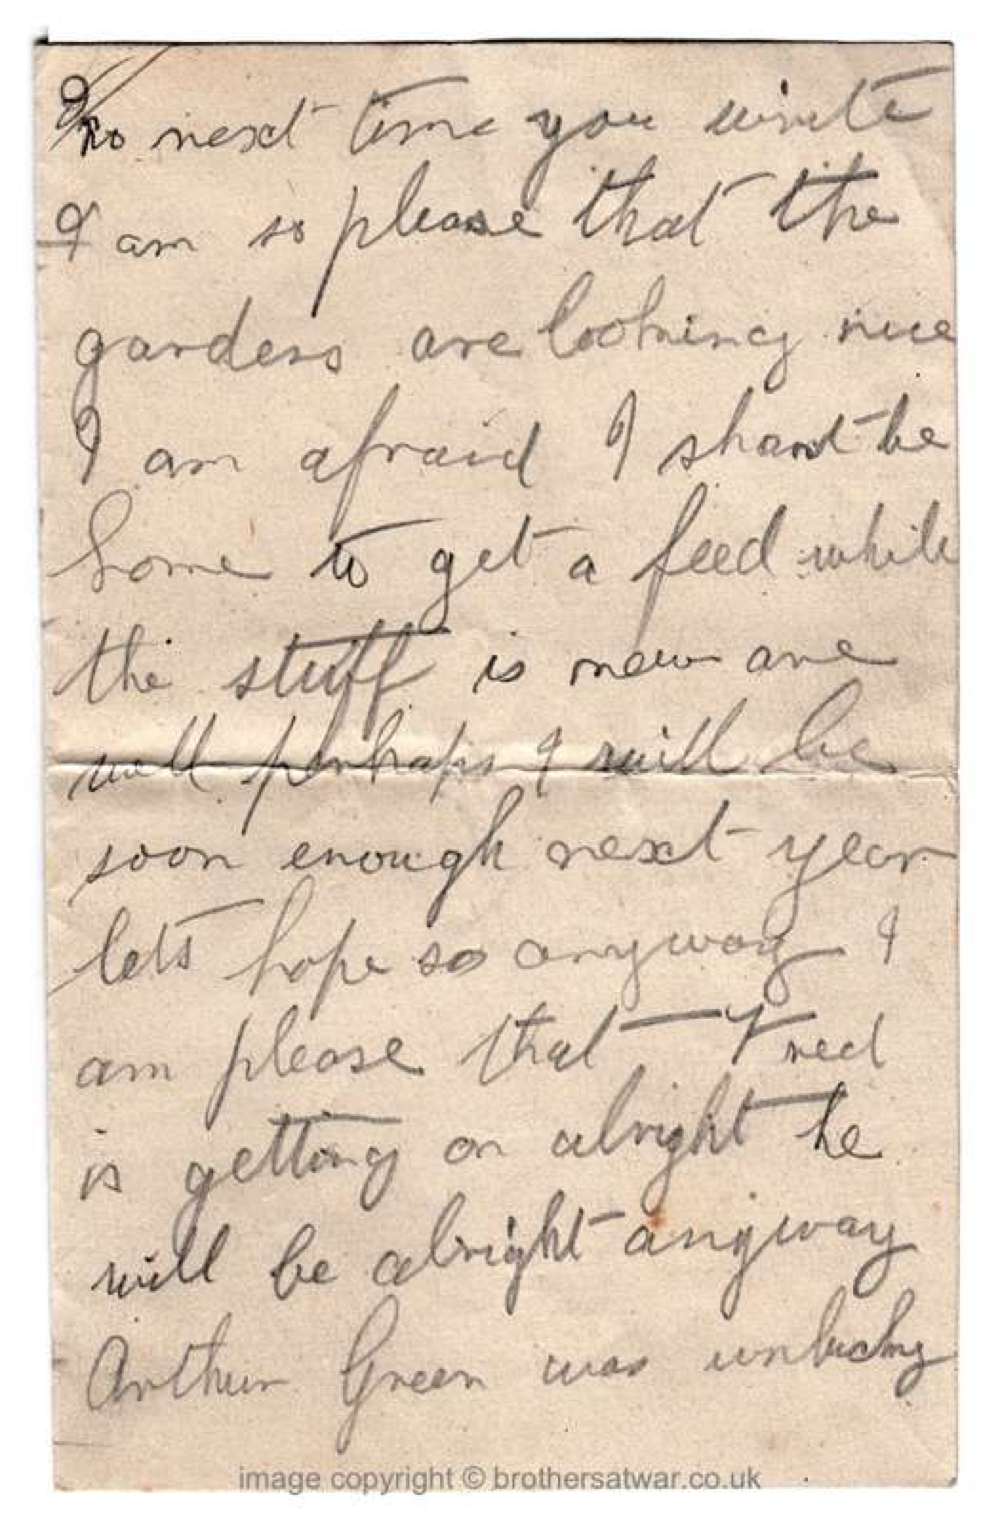 so next time you write
I am so please that the
gardens are looking nice
I am afraid I shant be
home to get a feed while
the stuff is new are
well perhaps I will be
soon enough next year
lets hope so anyway I
am please that Fred
is getting on alright he
will be alright anyway
Arthur Green was unlucky
image copyright © brothersatwar.co.uk